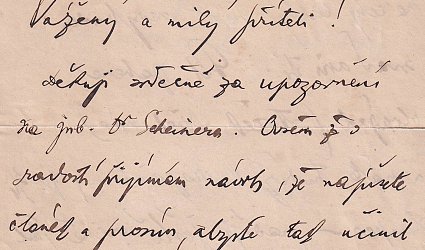 Vážený a milý příteli!
děkuji srdečně za upozornění
na jub. Dr Scheinera. Ovšem že s
radostí přijímám návrh, že napíšete
článek a prosím, abyste tak učinil